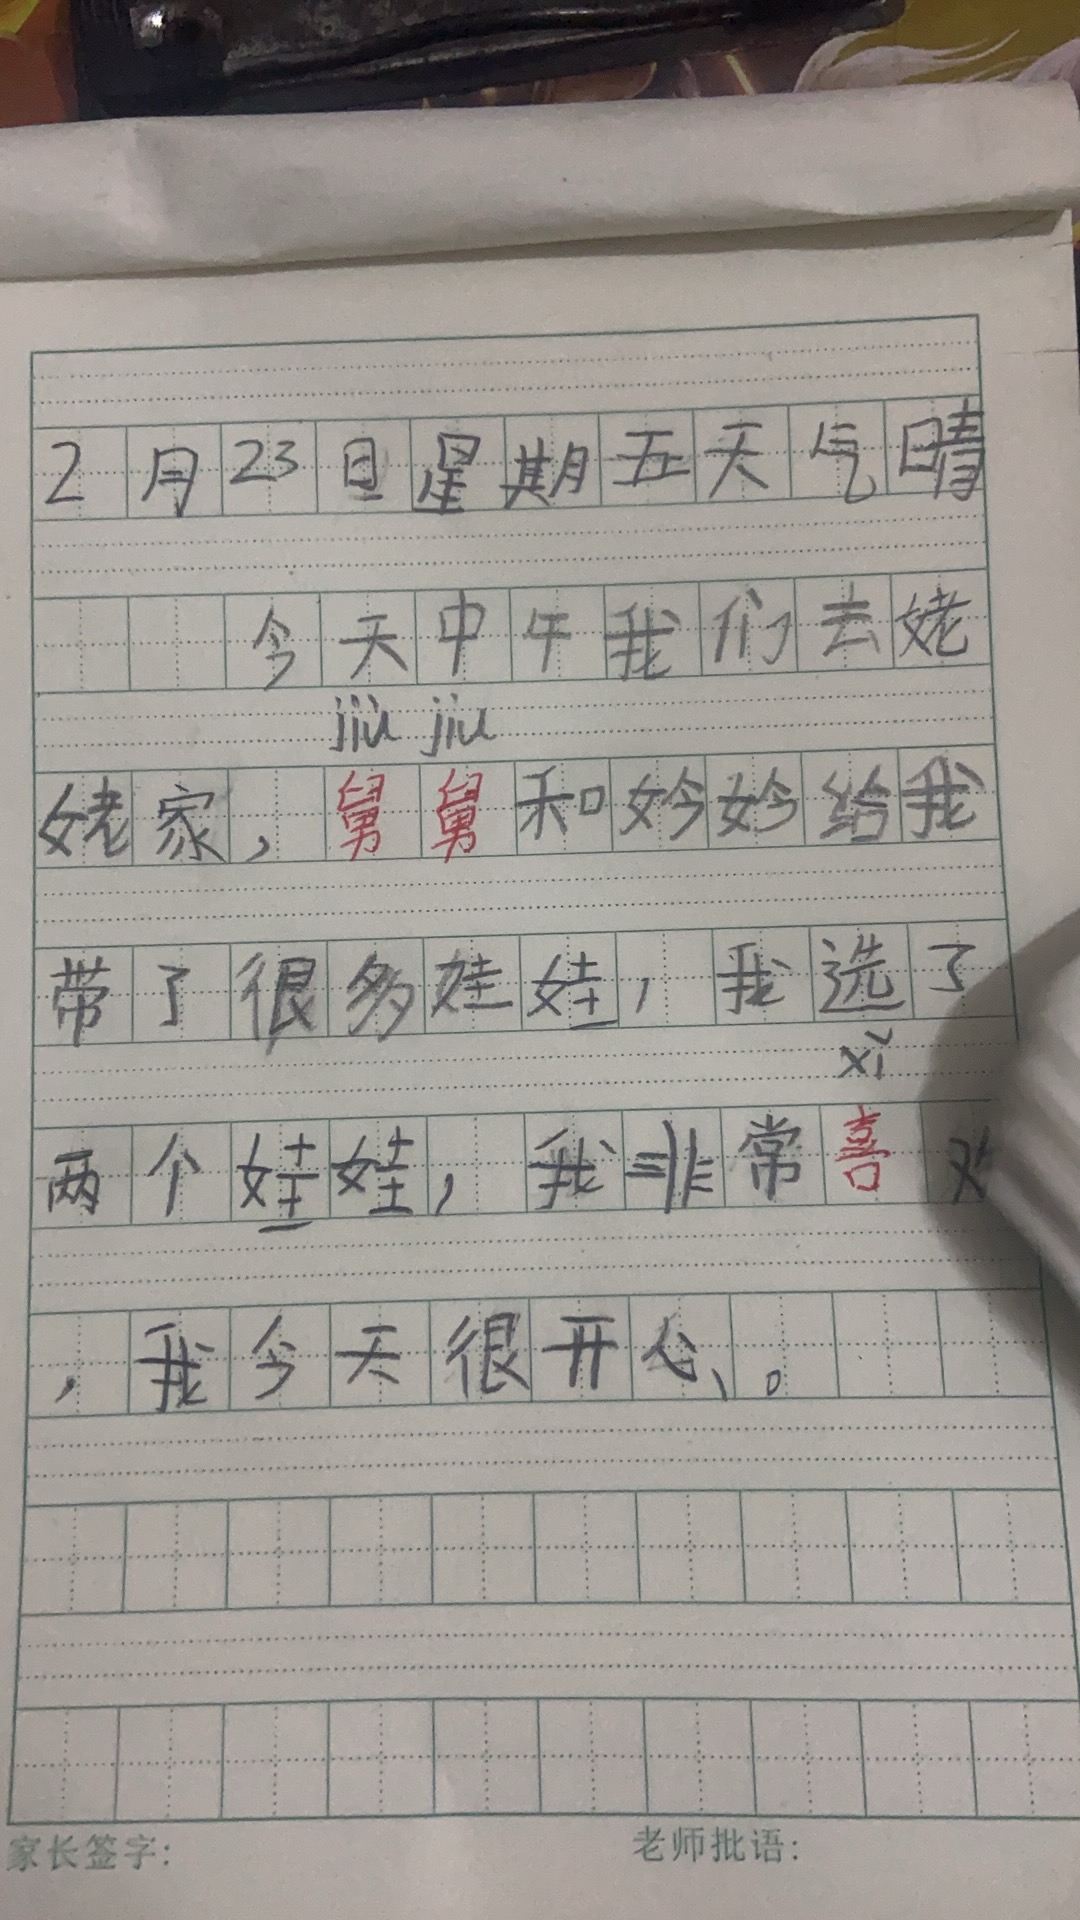 2月23日星期五天气晴
今天中午我们去姥
jiù jiu
姥家，舅舅和妗妗给我
带了很多娃娃，我选了
xǐ
两个娃娃，我非常喜欢
，我今天很开心。
家长签字: 老师批语: